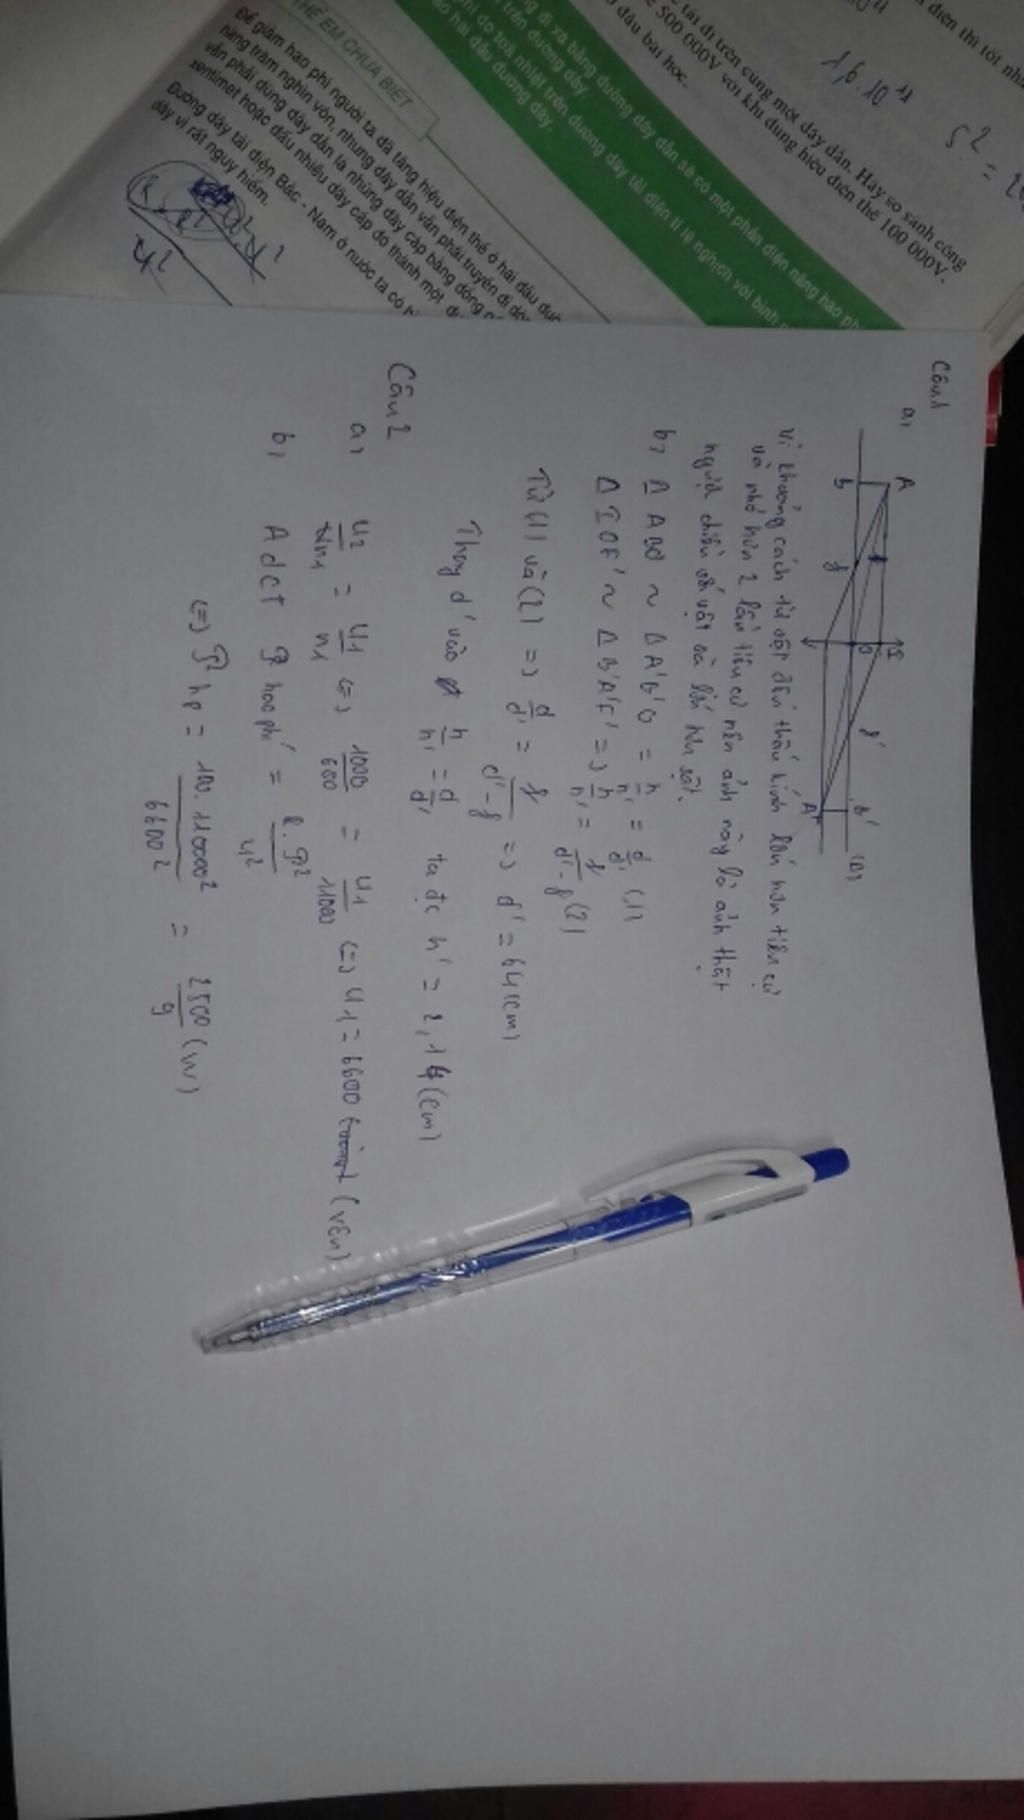 điện thì tốt nhấ
1,6.10¹¹
5.² = 2
tải đi trên cùng một dây dẫn. Hãy so sánh công
500 000V với khi dùng hiệu điện thế 100 000V.
đầu bài học.
g đi xa bằng đường dây dẫn sẽ có một phần điện năng hao ph
trên đường dây.
phí do toả nhiệt trên đường dây tải điện tỉ lệ nghịch với bình
o hai đầu đường dây.
THỂ EM CHƯA BIẾT
Để giảm hao phí người ta đã tăng hiệu điện thế ở hai đầu đư
hàng trăm nghìn vôn, nhưng dây dẫn vẫn phải truyền đi dò
vẫn phải dùng dây dẫn là những dây cáp bằng đồng c
xentimet hoặc dấu nhiều dây cáp đó thành một
Đường dây tải điện Bắc - Nam ở nước ta có h
dây vì rất nguy hiểm.
Câu 1
a,
A
I
B
f
O
f'
B'
A'
(Δ)
Vì khoảng cách từ vật đến thấu kính lớn hơn tiêu cự
và nhỏ hơn 2 lần tiêu cự nên ảnh này là ảnh thật
ngược chiều với vật và lớn hơn vật.
b, Δ ABO ~ Δ A'B'O = h/h' = d/d' (1)
Δ IOF' ~ Δ B'A'F' => h/h' = f/d'-f (2)
Từ (1) và (2) => d/d' = f/d'-f => d' = 64(cm)
Thay d' vào h/h' = d/d' ta đc h' = 2,14(cm)
Câu 2
a, U2/n2 = U1/n1 <=> 1000/600 = U1/11000 <=> U1 = 6600 (vôn)
b, Adct P hao phí = R.P²/U²
<=> P hp = 100.110000²/6600² = 2500/9 (W)